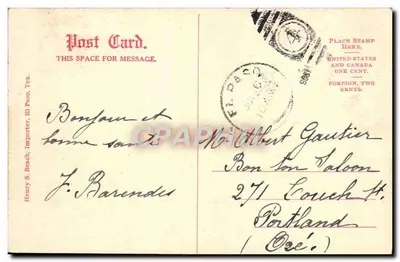 Post Card.
THIS SPACE FOR MESSAGE.
PLACE STAMP
HERE.
UNITED STATES
AND CANADA
ONE CENT.
FOREIGN, TWO
CENTS.
EL PASO
Henry S. Beach, Importer, El Paso, Tex.
Bonjour et
bonne santé
J. Barendes
Mr Albert Gautier
Bon ton Saloon
271 Couch St.
Portland
(Oré.)